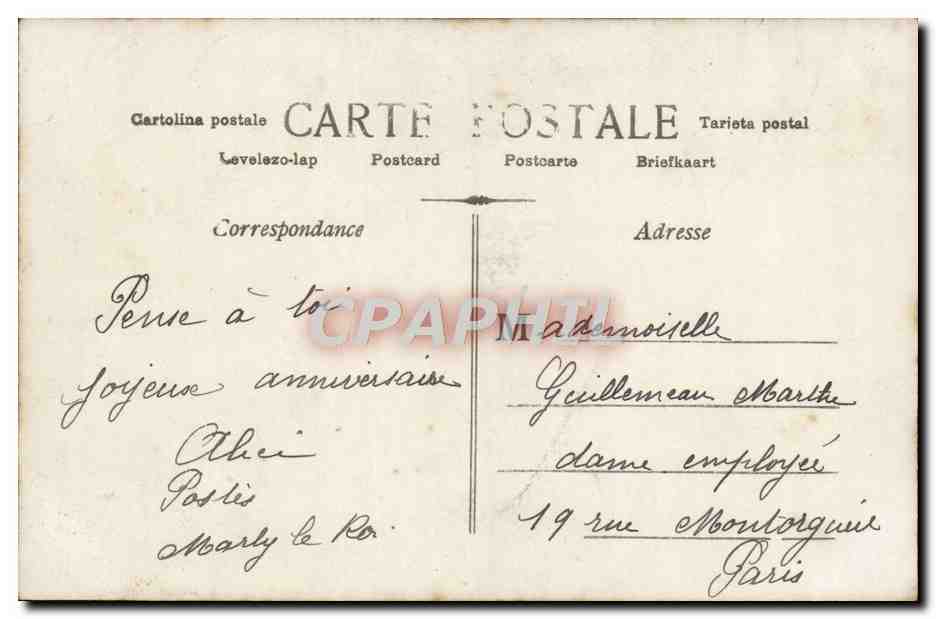 Cartolina postale CARTE POSTALE Tarieta postal
Levelezo-lap Postcard Postcarte Briefkaart
Correspondance
Pense à toi
Joyeux anniversaire
Alice
Postes
Marly le Roi
Adresse
Mademoiselle
Guillemeau Marthe
dame employée
19 rue Montorgueil
Paris
CPAPHIL